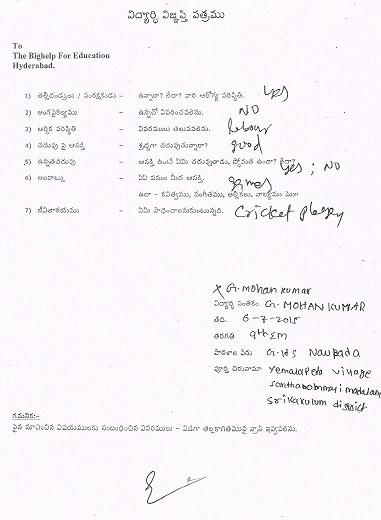 విద్యార్థి విజ్ఞప్తి పత్రము
To
The Bighelp For Education
Hyderabad.
1) తల్లిదండ్రులు / సంరక్షకుడు – ఉన్నారా? లేదా? వారి ఆరోగ్య పరిస్థితి. yes
2) అంగవైకల్యము – ఉన్నదో వివరించవలెను. NO
3) ఆర్థిక పరిస్థితి – వివరములు తెలుపవలెను. labour
4) చదువు పై ఆసక్తి – శ్రద్ధగా చదువుతున్నారా? good
5) ఉన్నతచదువు – ఆసక్తి ఉంటే ఏమి చదువుతాడు, స్తోమత ఉందా? లేదా? yes ; NO
6) అలవాట్లు – ఏ ఏ పనుల మీద ఆసక్తి. games
ఉదా – కవిత్వము, సంగీతము, ఆర్టికలు, నాట్యము
7) జీవితాశయము – ఏమి సాధించాలనుకుంటున్నది. Cricket
x G. mohan kumar
విద్యార్థి సంతకం G. MOHAN KUMAR
తేది. 6-7-2015
తరగతి 9th EM
పాఠశాల పేరు G.H.S Naupada
పూర్తి చిరునామా yemalapeta village
santhabommayi mandalam
srikakulum district
గమనిక:-
పైన సూచించిన విషయములకు సంబంధించిన వివరములు – విడిగా తెల్లకాగితముపై వ్రాసి ఇవ్వవలెను.